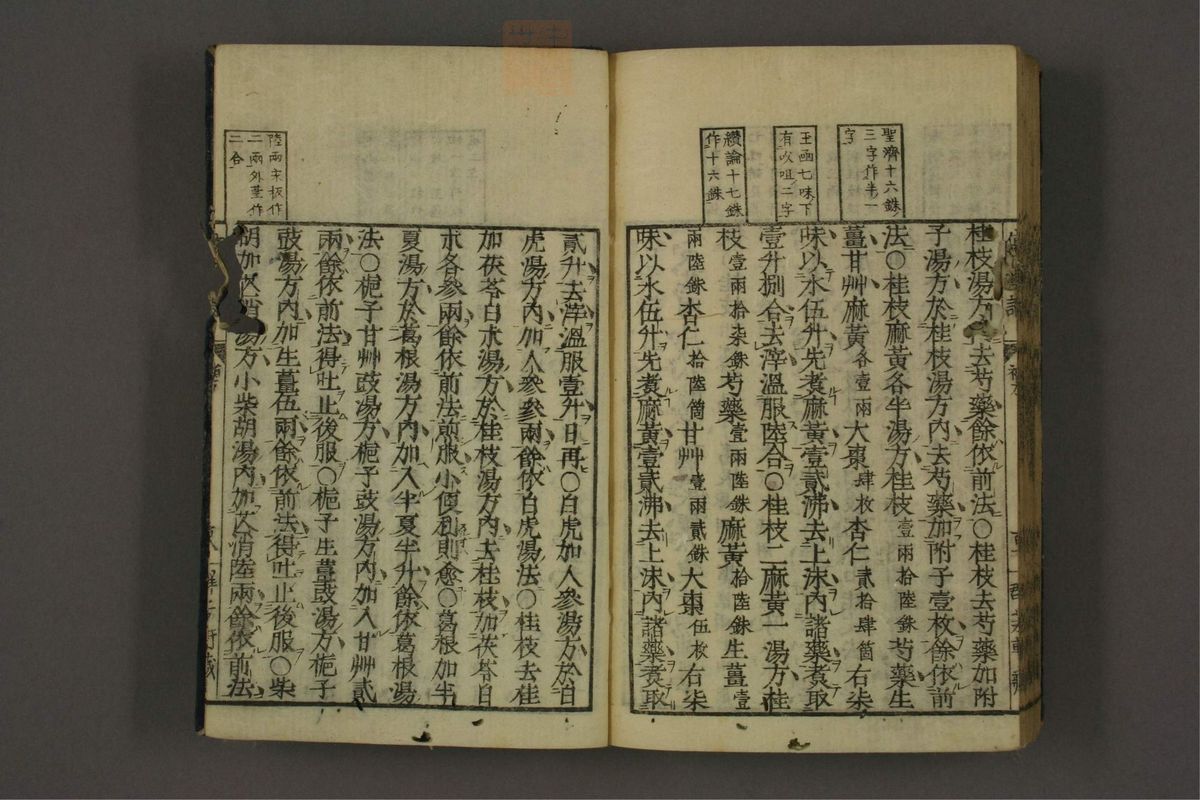 聖濟十六銖
三字作半一
字
王函七味下
有㕮咀二字
纉論十七銖
作十六銖
桂枝湯方去芍藥餘依前法○桂枝去芍藥加附
子湯方於桂枝湯方內去芍藥加附子壹枚餘依前
法○桂枝麻黃各半湯方桂枝壹兩拾陸銖芍藥生
薑甘艸麻黃各壹兩大棗肆枚杏仁貳拾肆箇右柒
味以水伍升先煑麻黃壹貳沸去上沫內諸藥煑取
壹升捌合去滓溫服陸合○桂枝二麻黃一湯方桂
枝壹兩拾柒銖芍藥壹兩陸銖麻黃拾陸銖生薑壹
兩陸銖杏仁拾陸箇甘艸壹兩貳銖大棗伍枚右柒
味以水伍升先煑麻黃壹貳沸去上沫內諸藥煑取
陸兩宋板作
二兩外臺作
二合
貳升去滓溫服壹升日再○白虎加人參湯方於白
虎湯方內加人參參兩餘依白虎湯法○桂枝去桂
加茯苓白朮湯方於桂枝湯方內去桂枝加茯苓白
朮各參兩餘依前法煎服小便利則愈○葛根加半
夏湯方於葛根湯方內加入半夏半升餘依葛根湯
法○梔子甘艸豉湯方梔子豉湯方內加入甘艸貳
兩餘依前法得吐止後服○梔子生薑豉湯方梔子
豉湯方內加生薑伍兩餘依前法得吐止後服○柴
胡加芒消湯方小柴胡湯內加芒消陸兩餘依前法